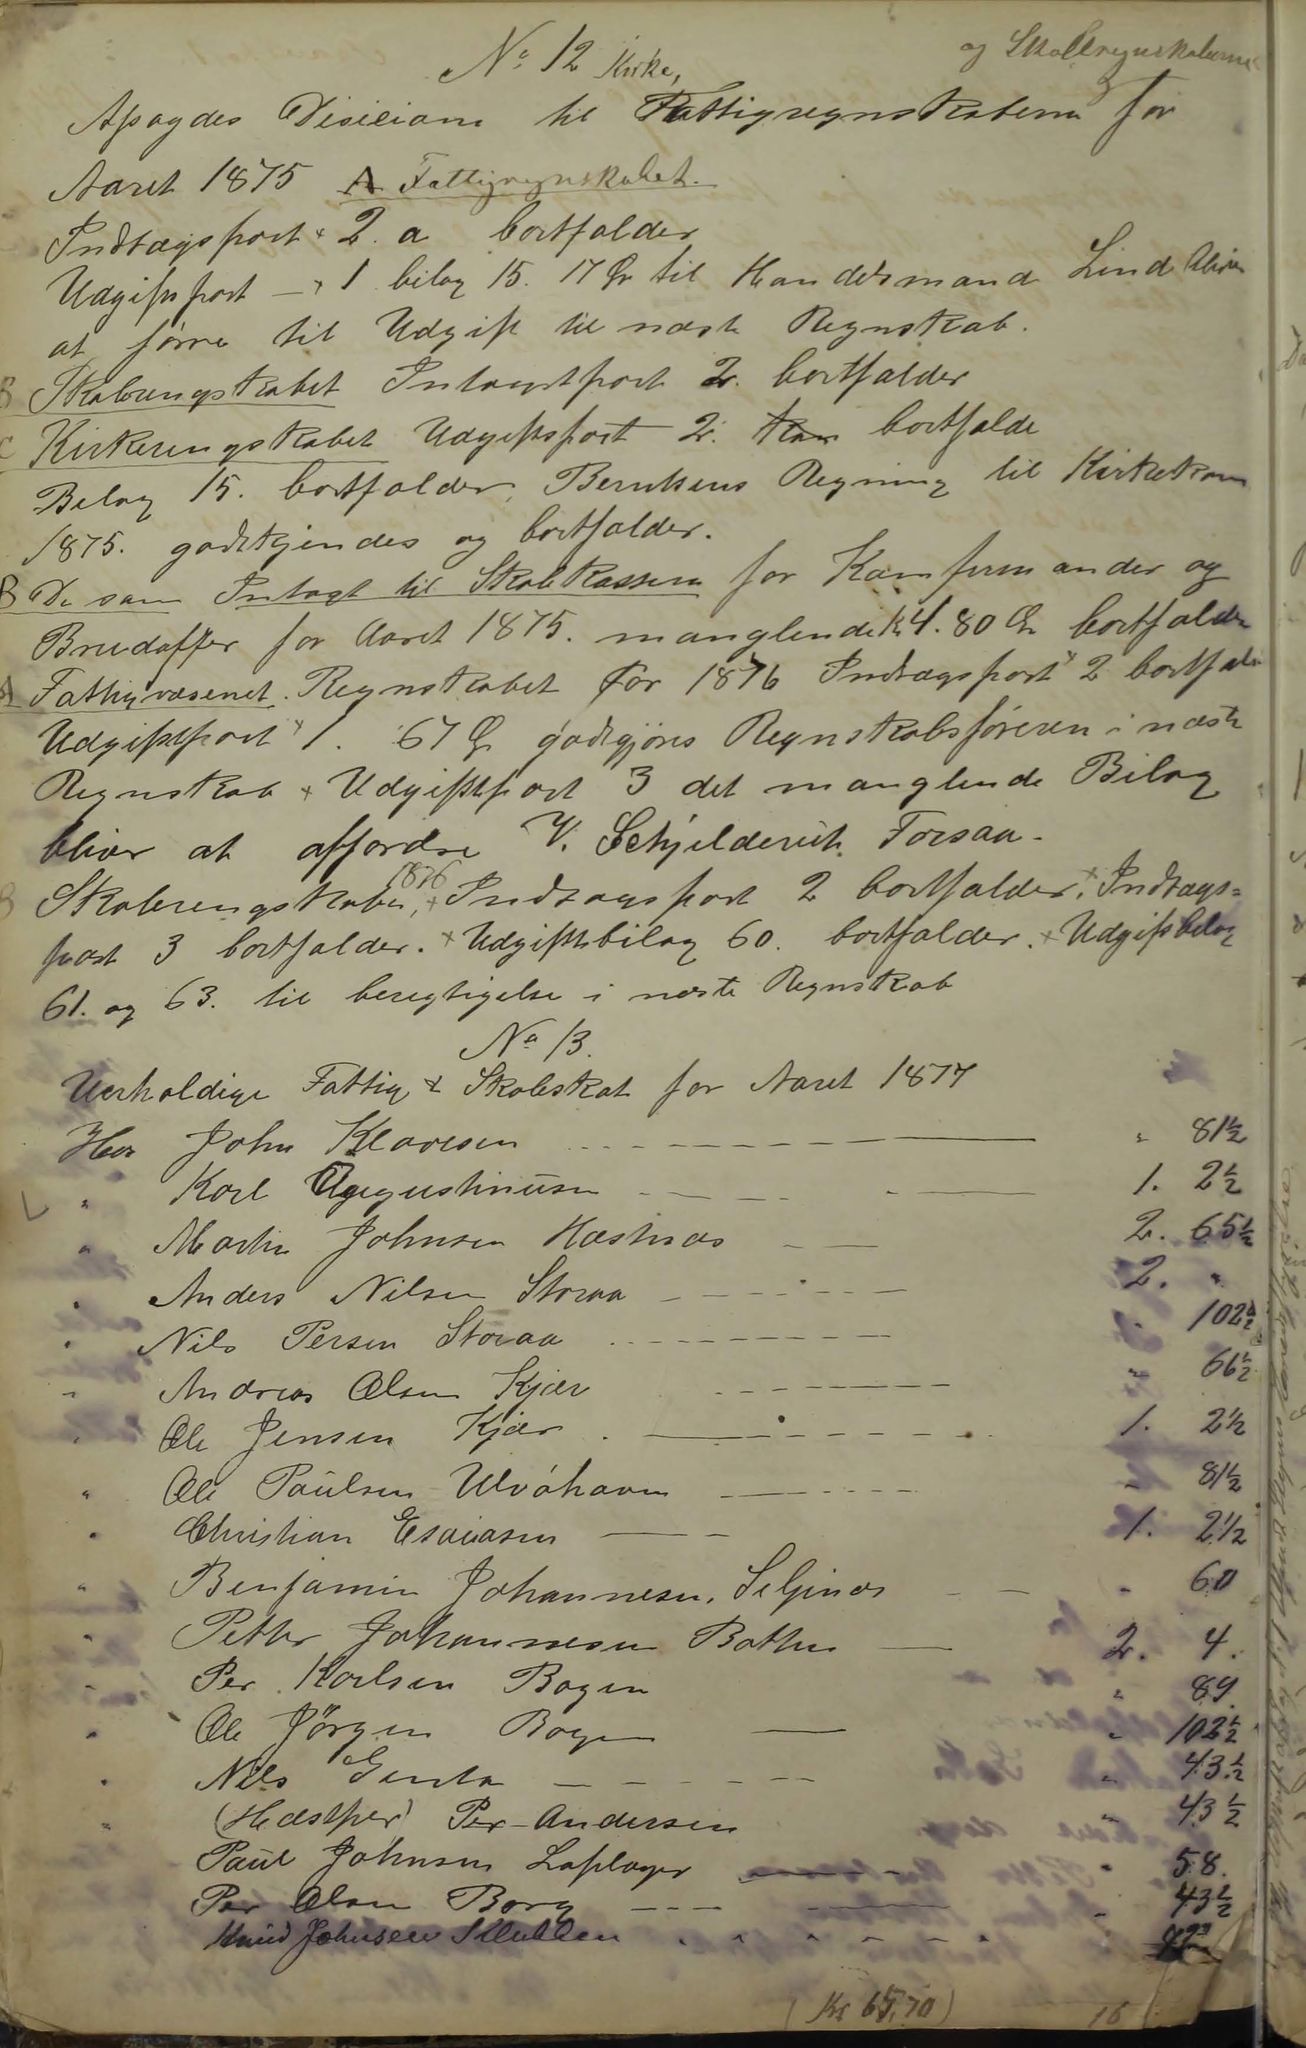 No 12 Kirke, og Skolleregnskaberne
Afsagdes Disicion til Fattigregnskabern for
Aaret 1875 A Fattigregnskabet.
Indtægspost + 2. a bortfalder
Udgiftspost - + 1 bilag 15. 17 Ør til Handelsmand Lind bliver
at förre til Udgift til næste Regnskab.
B Skolerengskabet Intægtpost 2. bortfalder
C Kirkerengskabet Udgiftspost 2. bortfalde
Belag 15. bortfalder. Berntsens Regning til Kirkekom
1875. godtkjendes og bortfalder.
B De som Intægt til Skolekassen for Komfirmander og
Brudoffer for Aaret 1875. manglende Kr 4.80 Ør bortfalder
A Fattigvæsenet. Regnskabet for 1876 Indtægspost + 2 bortfalder
Udgiftspost + 1. 67 Ør godtgjöres Regnskabsföreren i næste
Regnskab + Udgiftspost 3 det manglende Bilag
bliver at affordre V. Schjelderüt Forsaa.
B Skolerengskabet, 1876 + Indtagspost 2 bortfalder. + Indtægs=
post 3 bortfalder. + Udgiftsbilag 60. bortfalder. + Udgiftsbilag
61. og 63. til beregtigelse i næste Regnskab
No 13.
Uerholdige Fattig & Skoleskat for Aaret 1877
Hos John Klavesen " 81½
" Karl Augustinüsen 1. 2½
" Martin Johnsen Hæstnæs 2. 65½
" Anders Nilsen Storaa 2. "
" Nils Persen Storaa " 102½
" Andreas Olsen Kjær " 66½
" Ole Jensen Kjær 1. 2½
" Ole Paülsen Ulvöhavn " 81½
" Christian Esaiasen 1. 2½
" Benjamin Johannesen, Seljnæs " 60
" Petter Johannesen Botten 2. 4.
" Per Karlsen Bogen " 89.
" Ole Jörgen Bogen " 102½
" Nils Genta " 43½
" (Hæstper) Per Andersen " 43½
Paül Johnsen Laplager " 58.
Per Olsen Borg " 43½
Knüd Johnsen
(Kr 65,70) 16